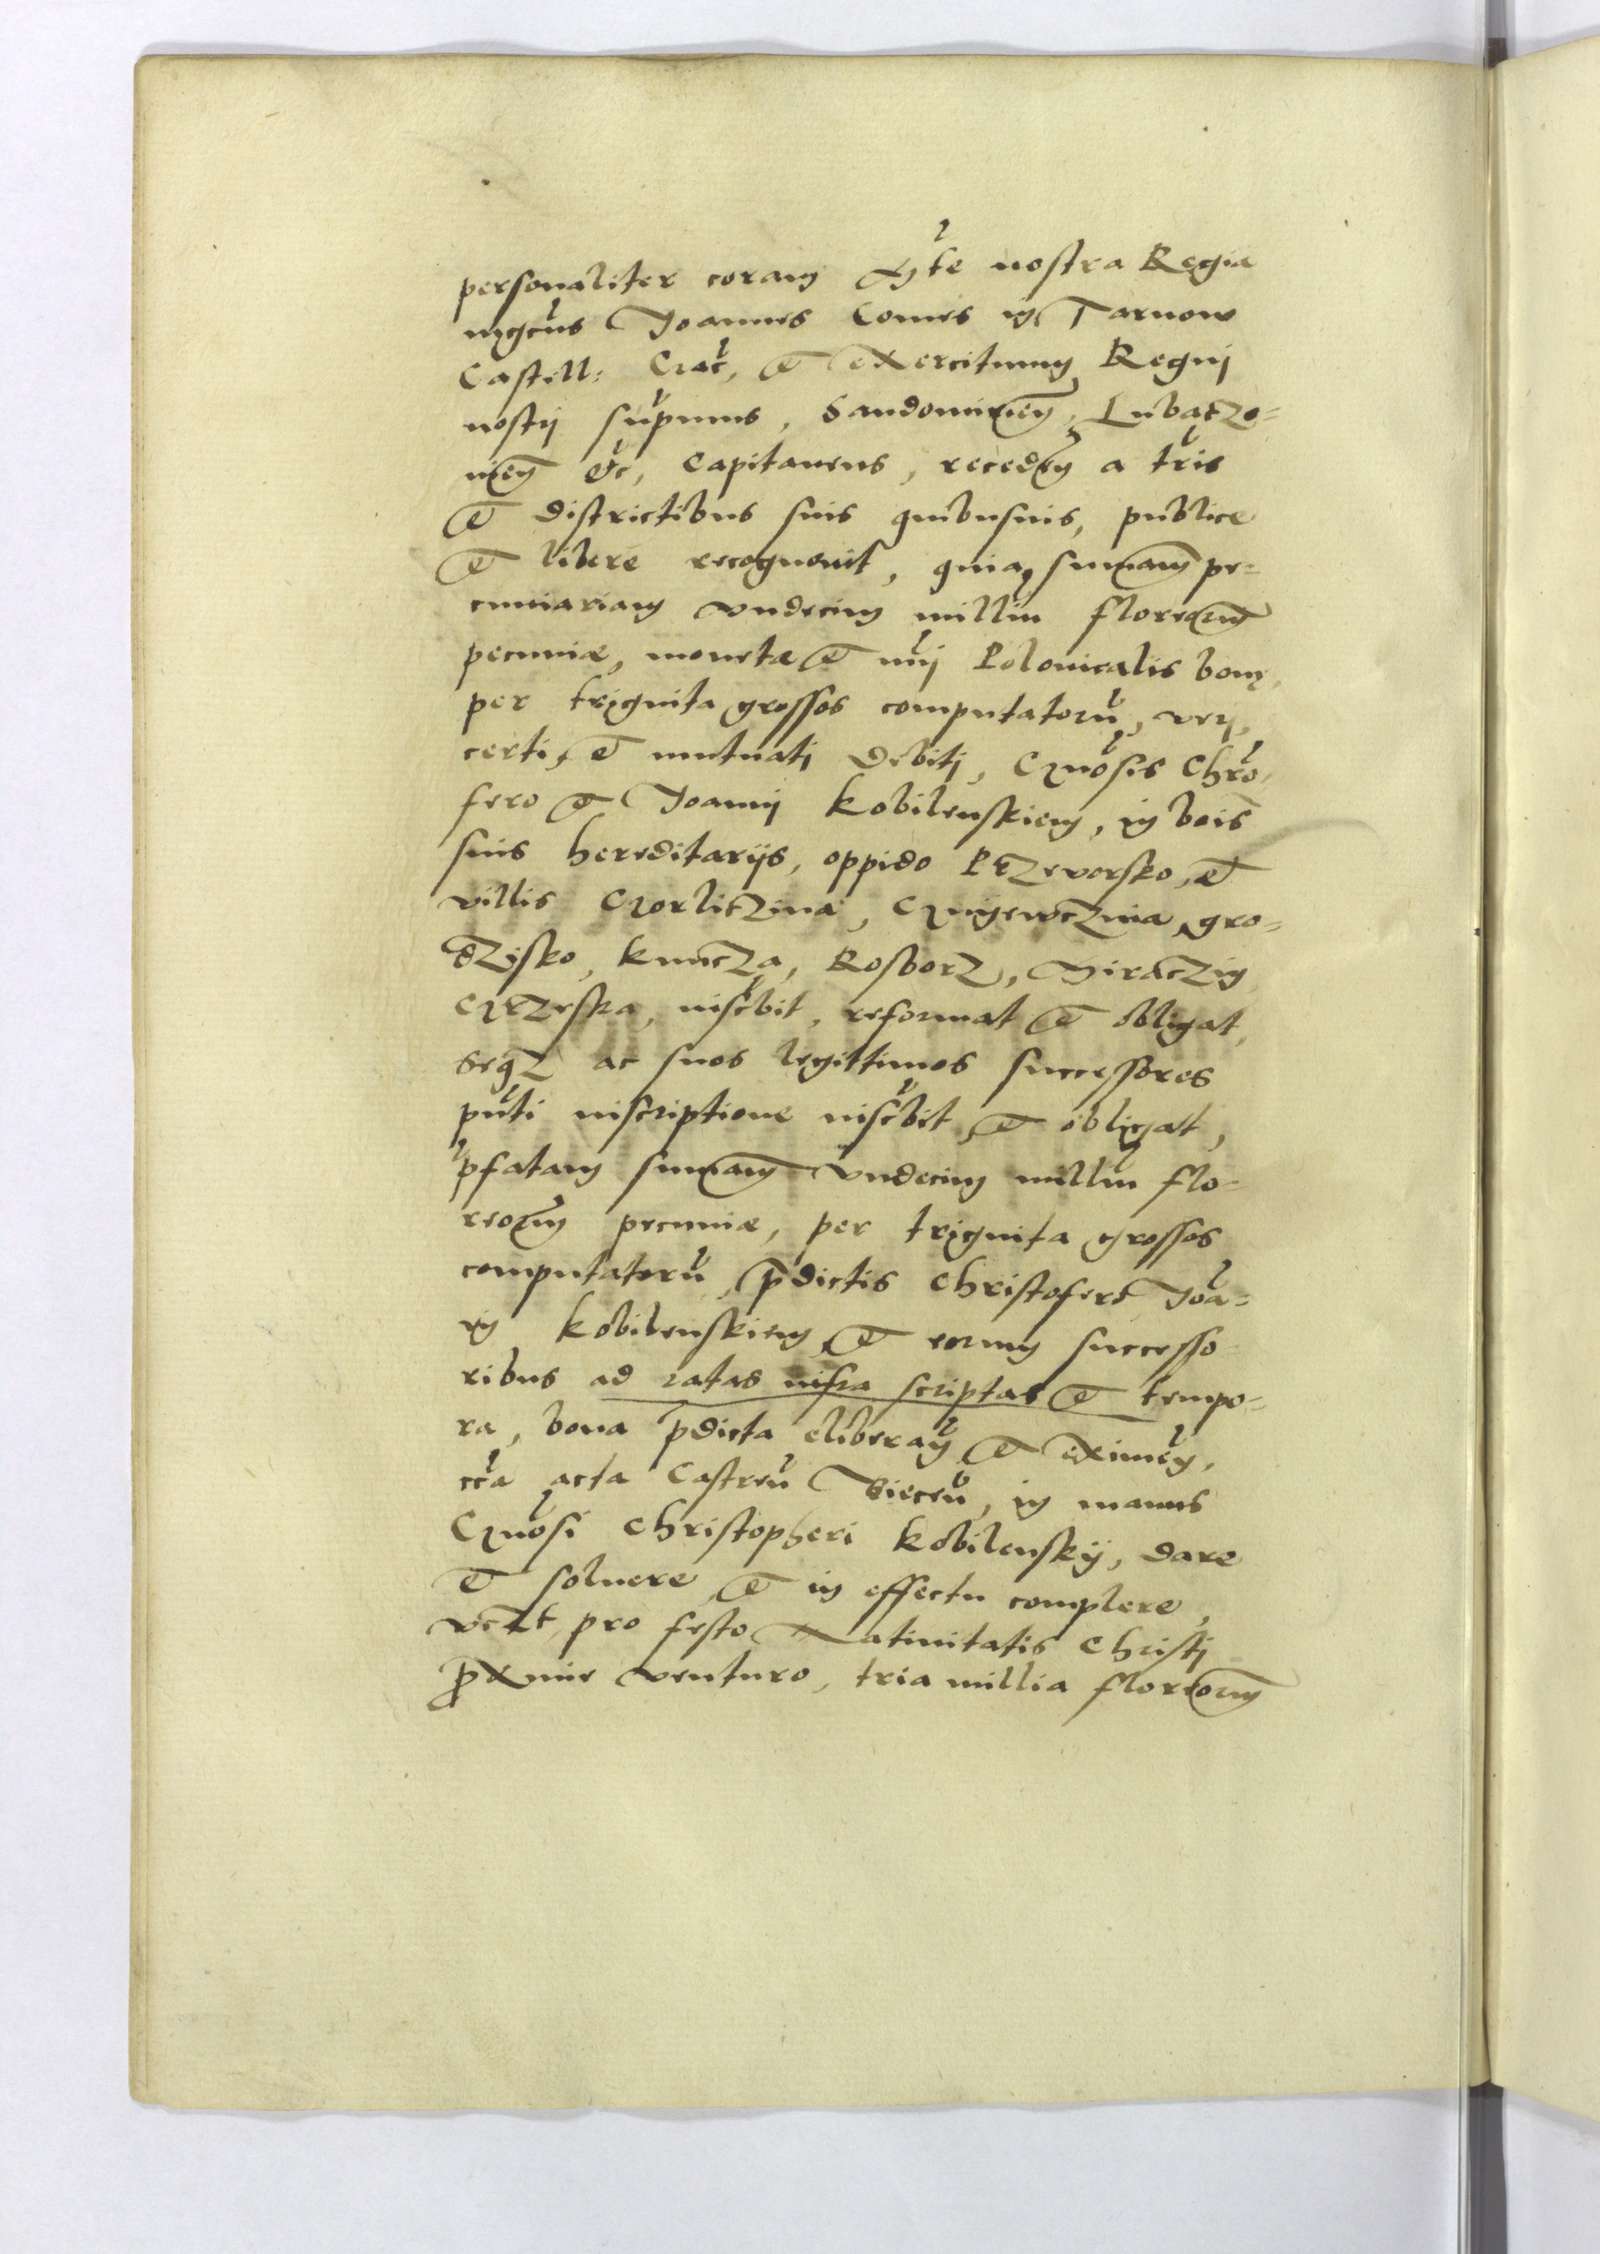 personaliter coram Mte nostra Regia
mgcus Joannes Comes in Tarnow
Castell: Crac, et exercituum Regni
nostri supmus, Sandomirien, Lubaczo=
nien &c, Capitaneus, receden a tris
et districtibus suis quibusuis, publice
et libere recognouit, quia summam pe=
cuniariam vndecim milliu florenorum
pecuniæ, monetæ et nri Polonicalis bony
per triginta grossos computatoru, veri,
certi, et mutuati debiti, Gnosis Chro
fero et Joanni Kobilenskiem, in bois
suis hereditariis, oppido Przeworsko, et
villis Gorliczina, Gniewczina, Gro=
dzisko, Kuncza, Rosborz, Miraczin
Grzeska, inscbit, reformat et obligat,
Seqz ac suos legittimos successores
pnti inscriptione inscbit, et obligat,
pfatam summam Vndecim milliu flo=
renorum pecuniæ, per triginta grossos
computatoru, pdictis Christofero Joa=
ni Kobilenskiem, et eorum successo
ribus ad ratas infra scriptas et tempo=
ra, bona pdicta eliberan, et eximen,
cra acta Castren Biecen, in manus
Gnosi Christopheri Kobilenskij, dare
et soluere, et in effectu complere,
vczt pro festo Natiuitatis Christi
proxime venturo, tria millia florenorum